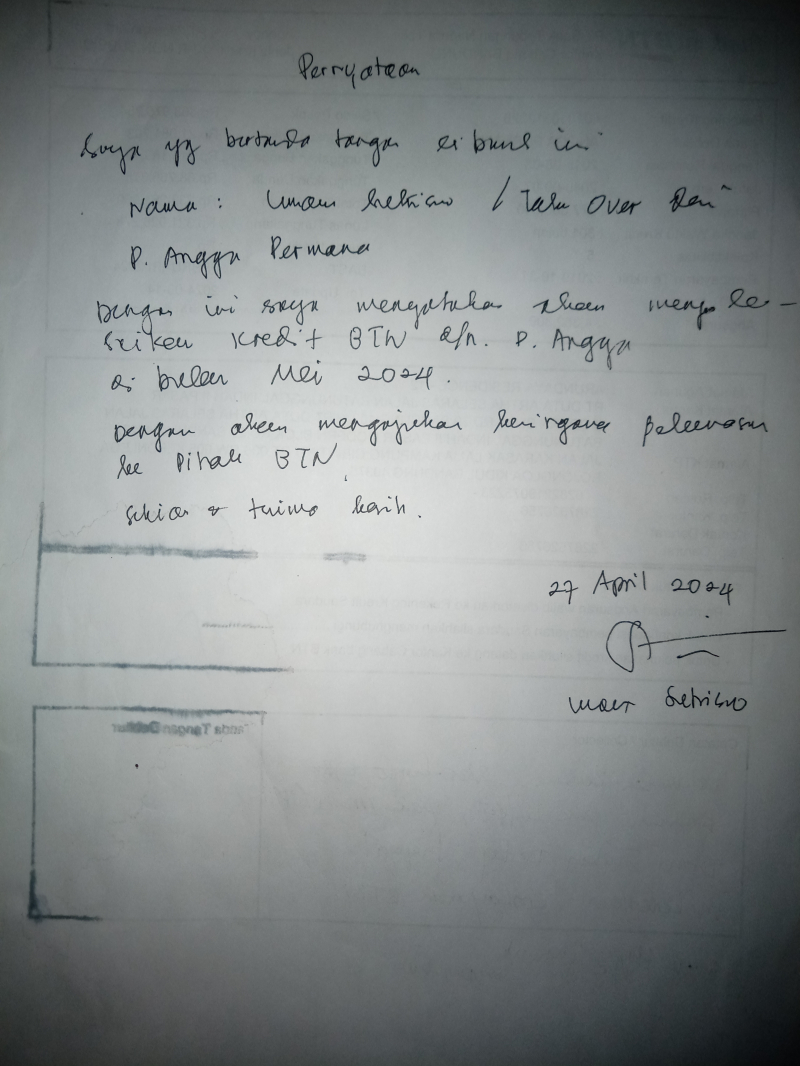 Pernyataan
Saya yg bertanda tangan di bawah ini
Nama : Umar Sutrisno / Take Over Dari
P. Angga Permana
Dengan ini saya menyatakan akan menyele-
saikan Kredit BTN a/n. P. Angga
di bulan Mei 2024.
Dengan akan mengajukan keringanan pelunasan
ke Pihak BTN.
Sekian & terima kasih.
27 April 2024
Umar Sutrisno
Tanda Tangan Debitur